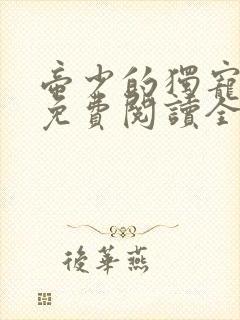 帝少的獨寵
免費閱讀全
後華燕